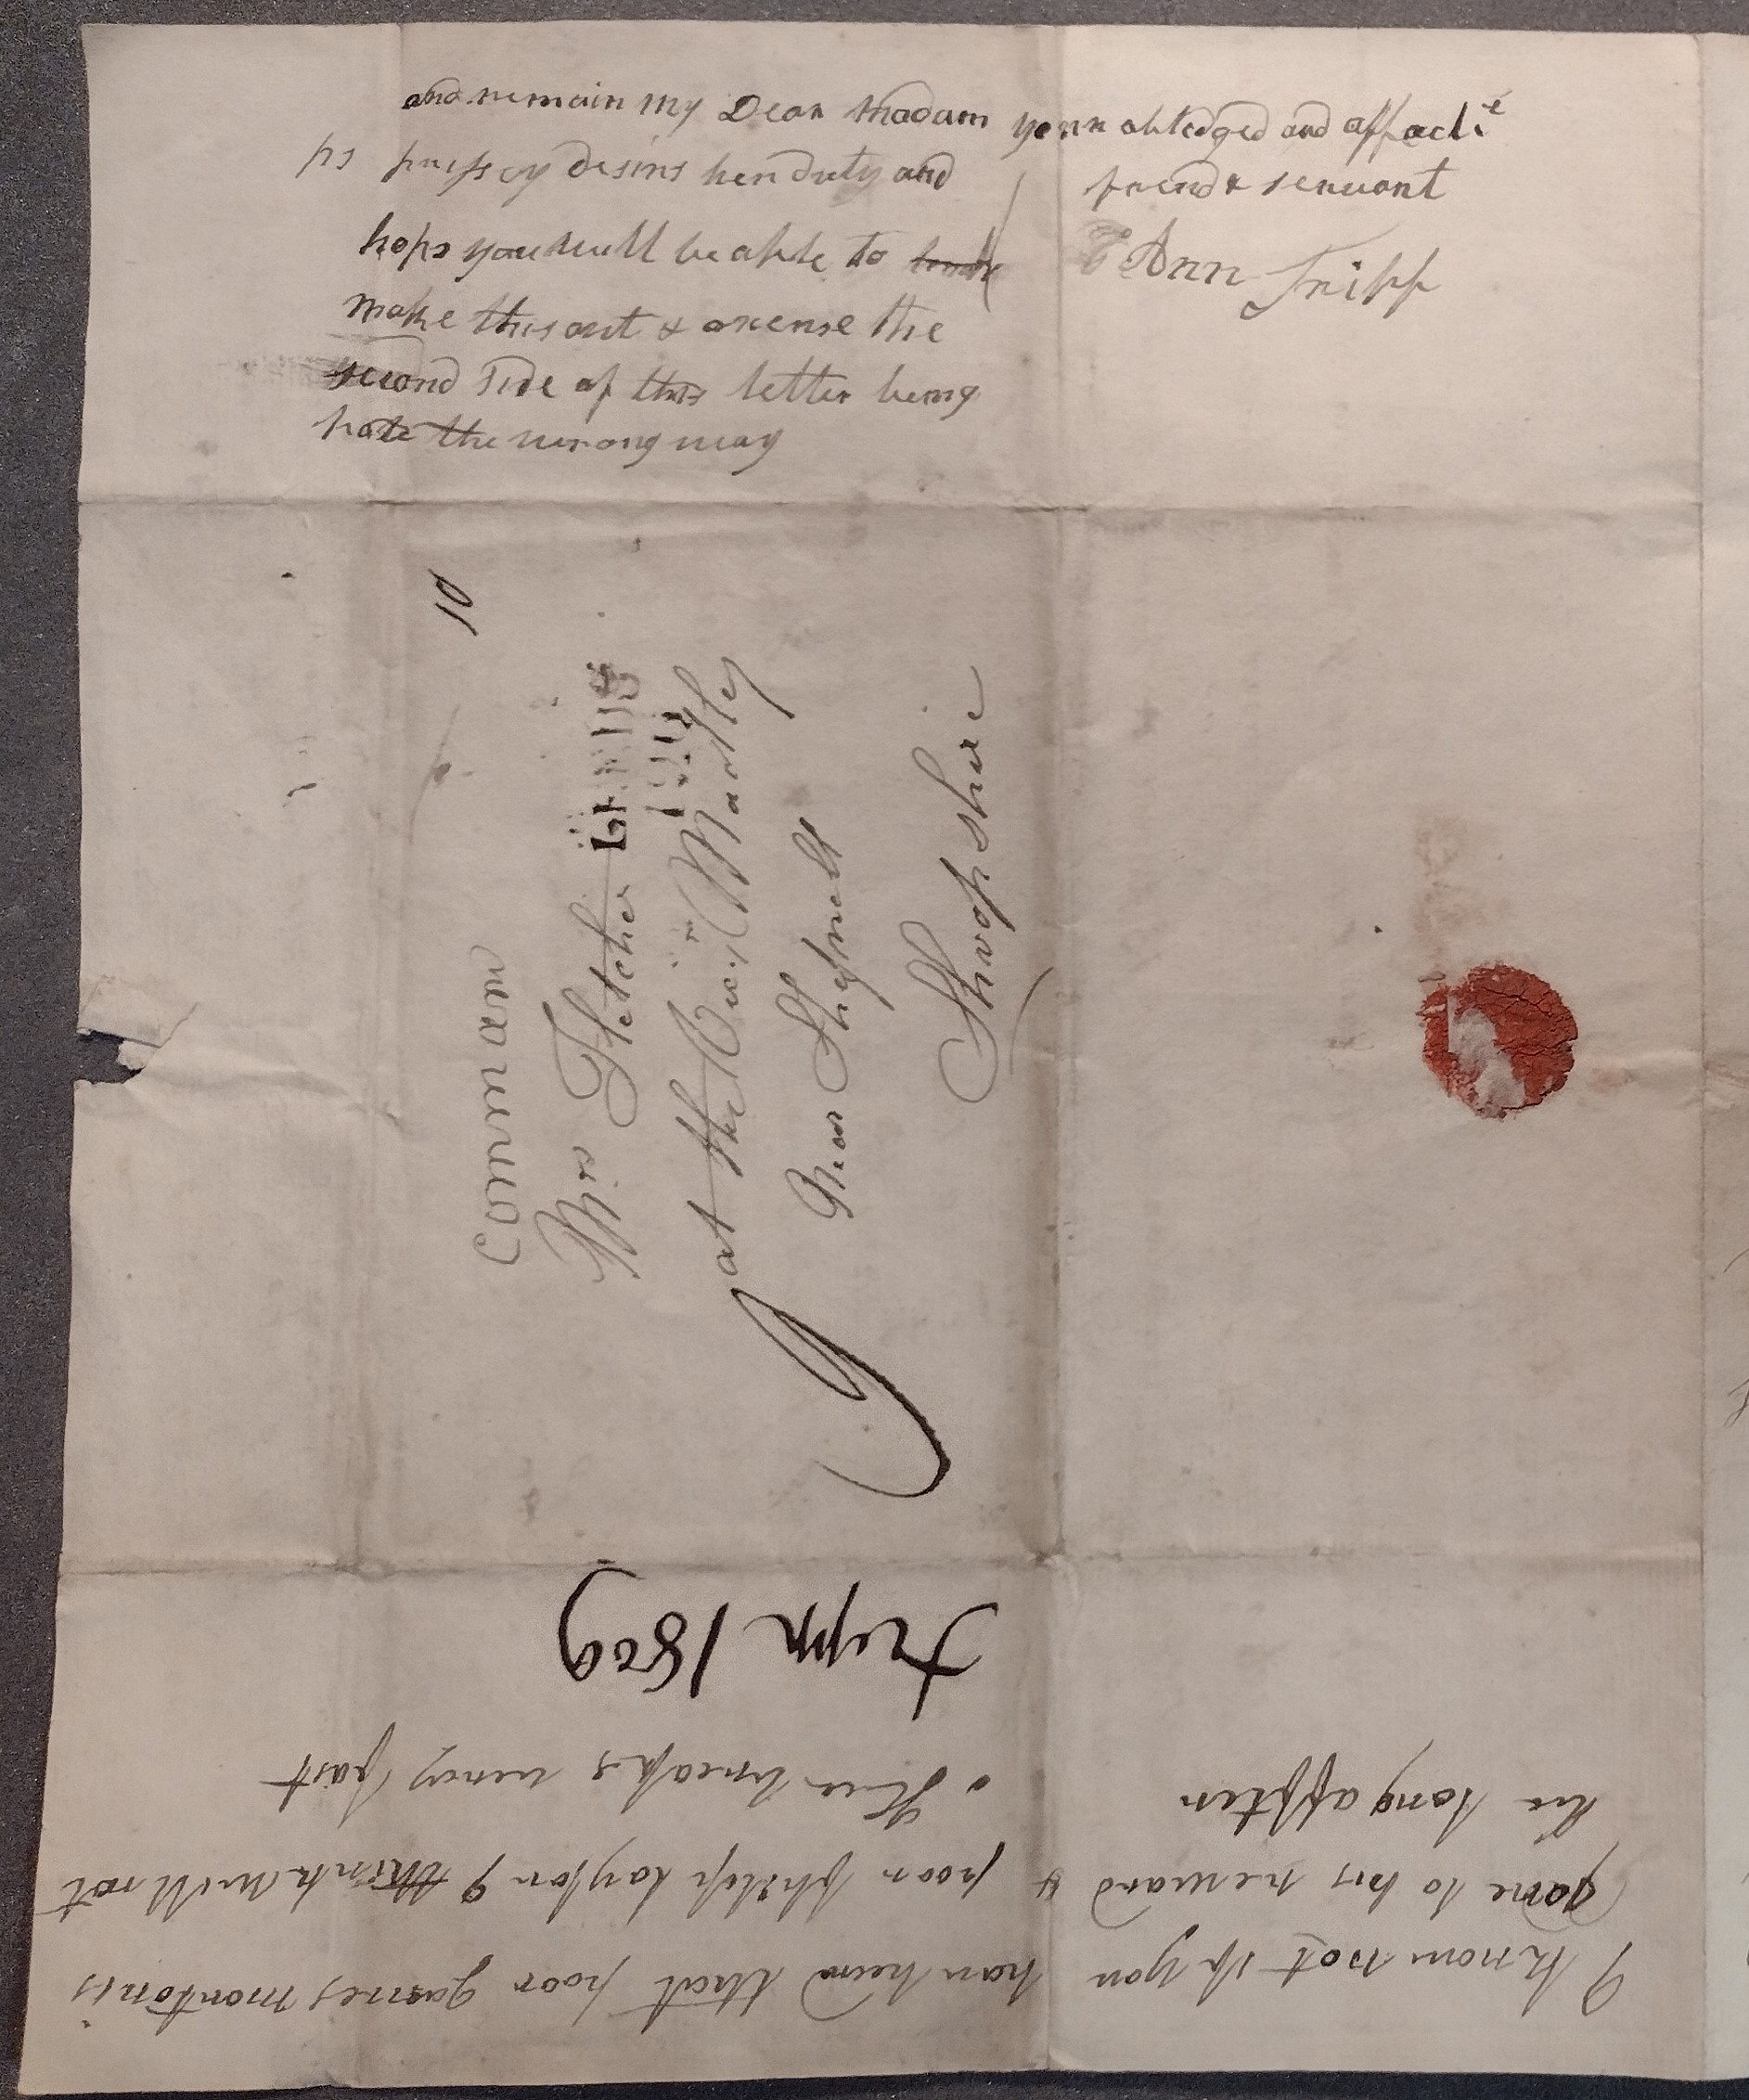 and remain my Dear Madam your obledged and affact.e
friend & servant
Ann Tripp
ps prissey desirs her duty and
hops you will be able to
make this out & excuse the
second side of this letter being
rote the wrong way
10
Common
Mrs Fletcher
at the Vic. Madley
Near Shefnell
Shropshire
tripp 1809
I know not if you have heard that poor James morton is
gone to his reward & poor philip taylor I think will not
be long affter
Hur breaks very fast